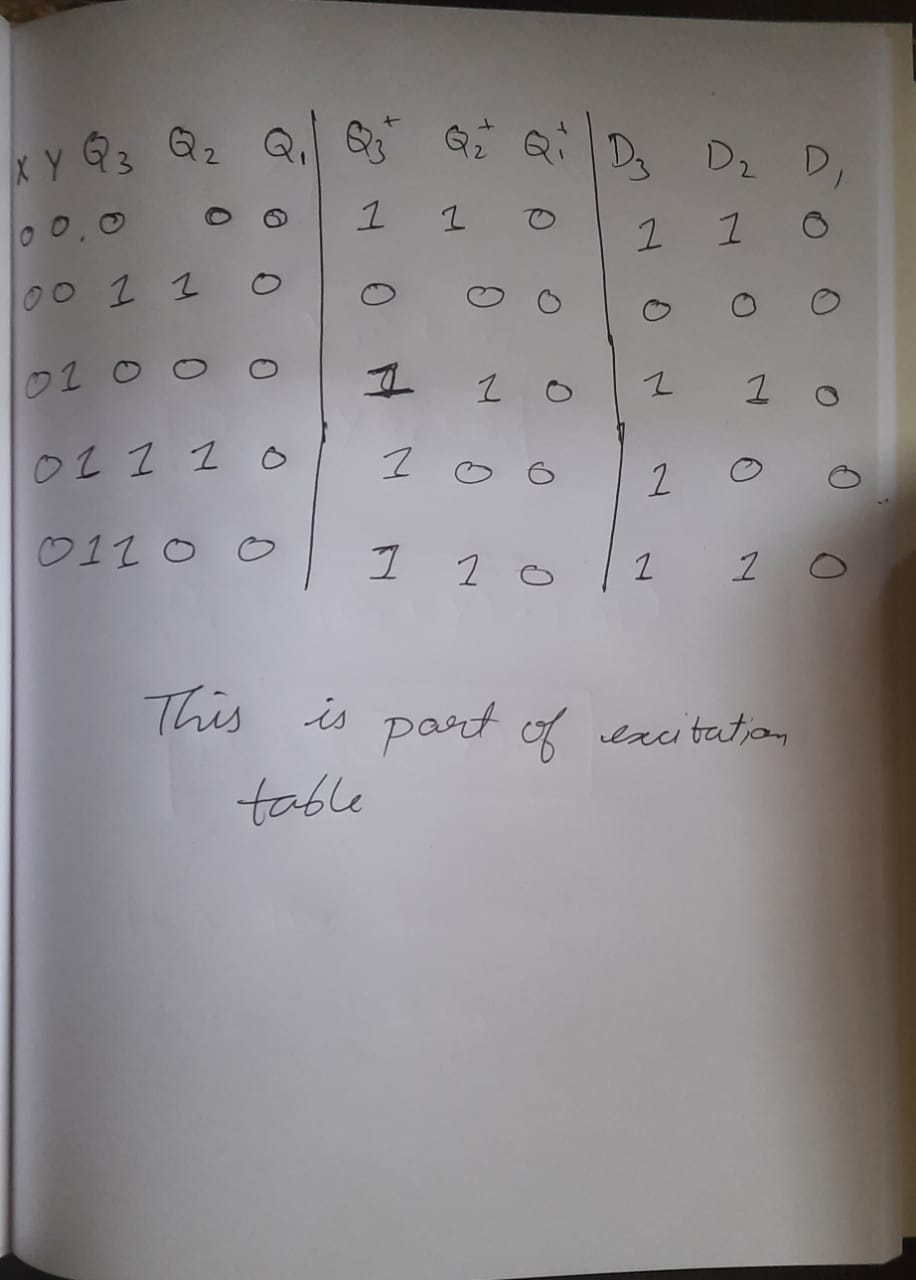 X Y Q3 Q2 Q1 | Q3+ Q2+ Q1+ | D3 D2 D1
0 0 . 0 0 0 | 1 1 0 | 1 1 0
0 0 1 1 0 | 0 0 0 | 0 0 0
0 1 0 0 0 | 1 1 0 | 1 1 0
0 1 1 1 0 | 1 0 0 | 1 0 0
0 1 1 0 0 | 1 1 0 | 1 1 0
This is part of excitation
table